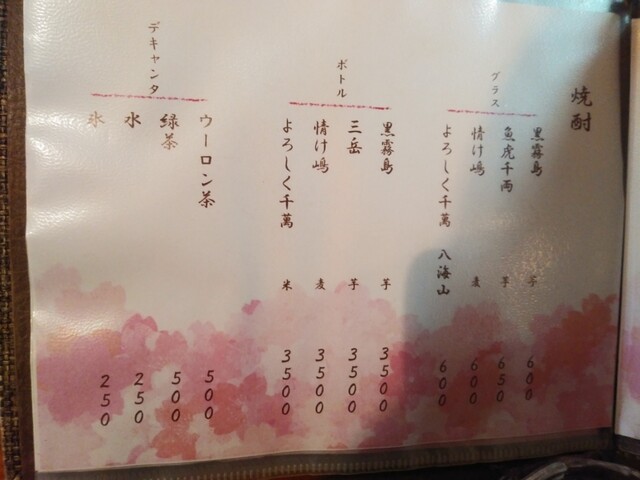 焼酎
グラス
黒霧島 芋 600
魚虎千両 芋 650
情け嶋 麦 600
よろしく千萬 八海山 600
ボトル
黒霧島 芋 3500
三岳 芋 3500
情け嶋 麦 3500
よろしく千萬 米 3500
デキャンタ
ウーロン茶 500
緑茶 500
水 250
氷 250